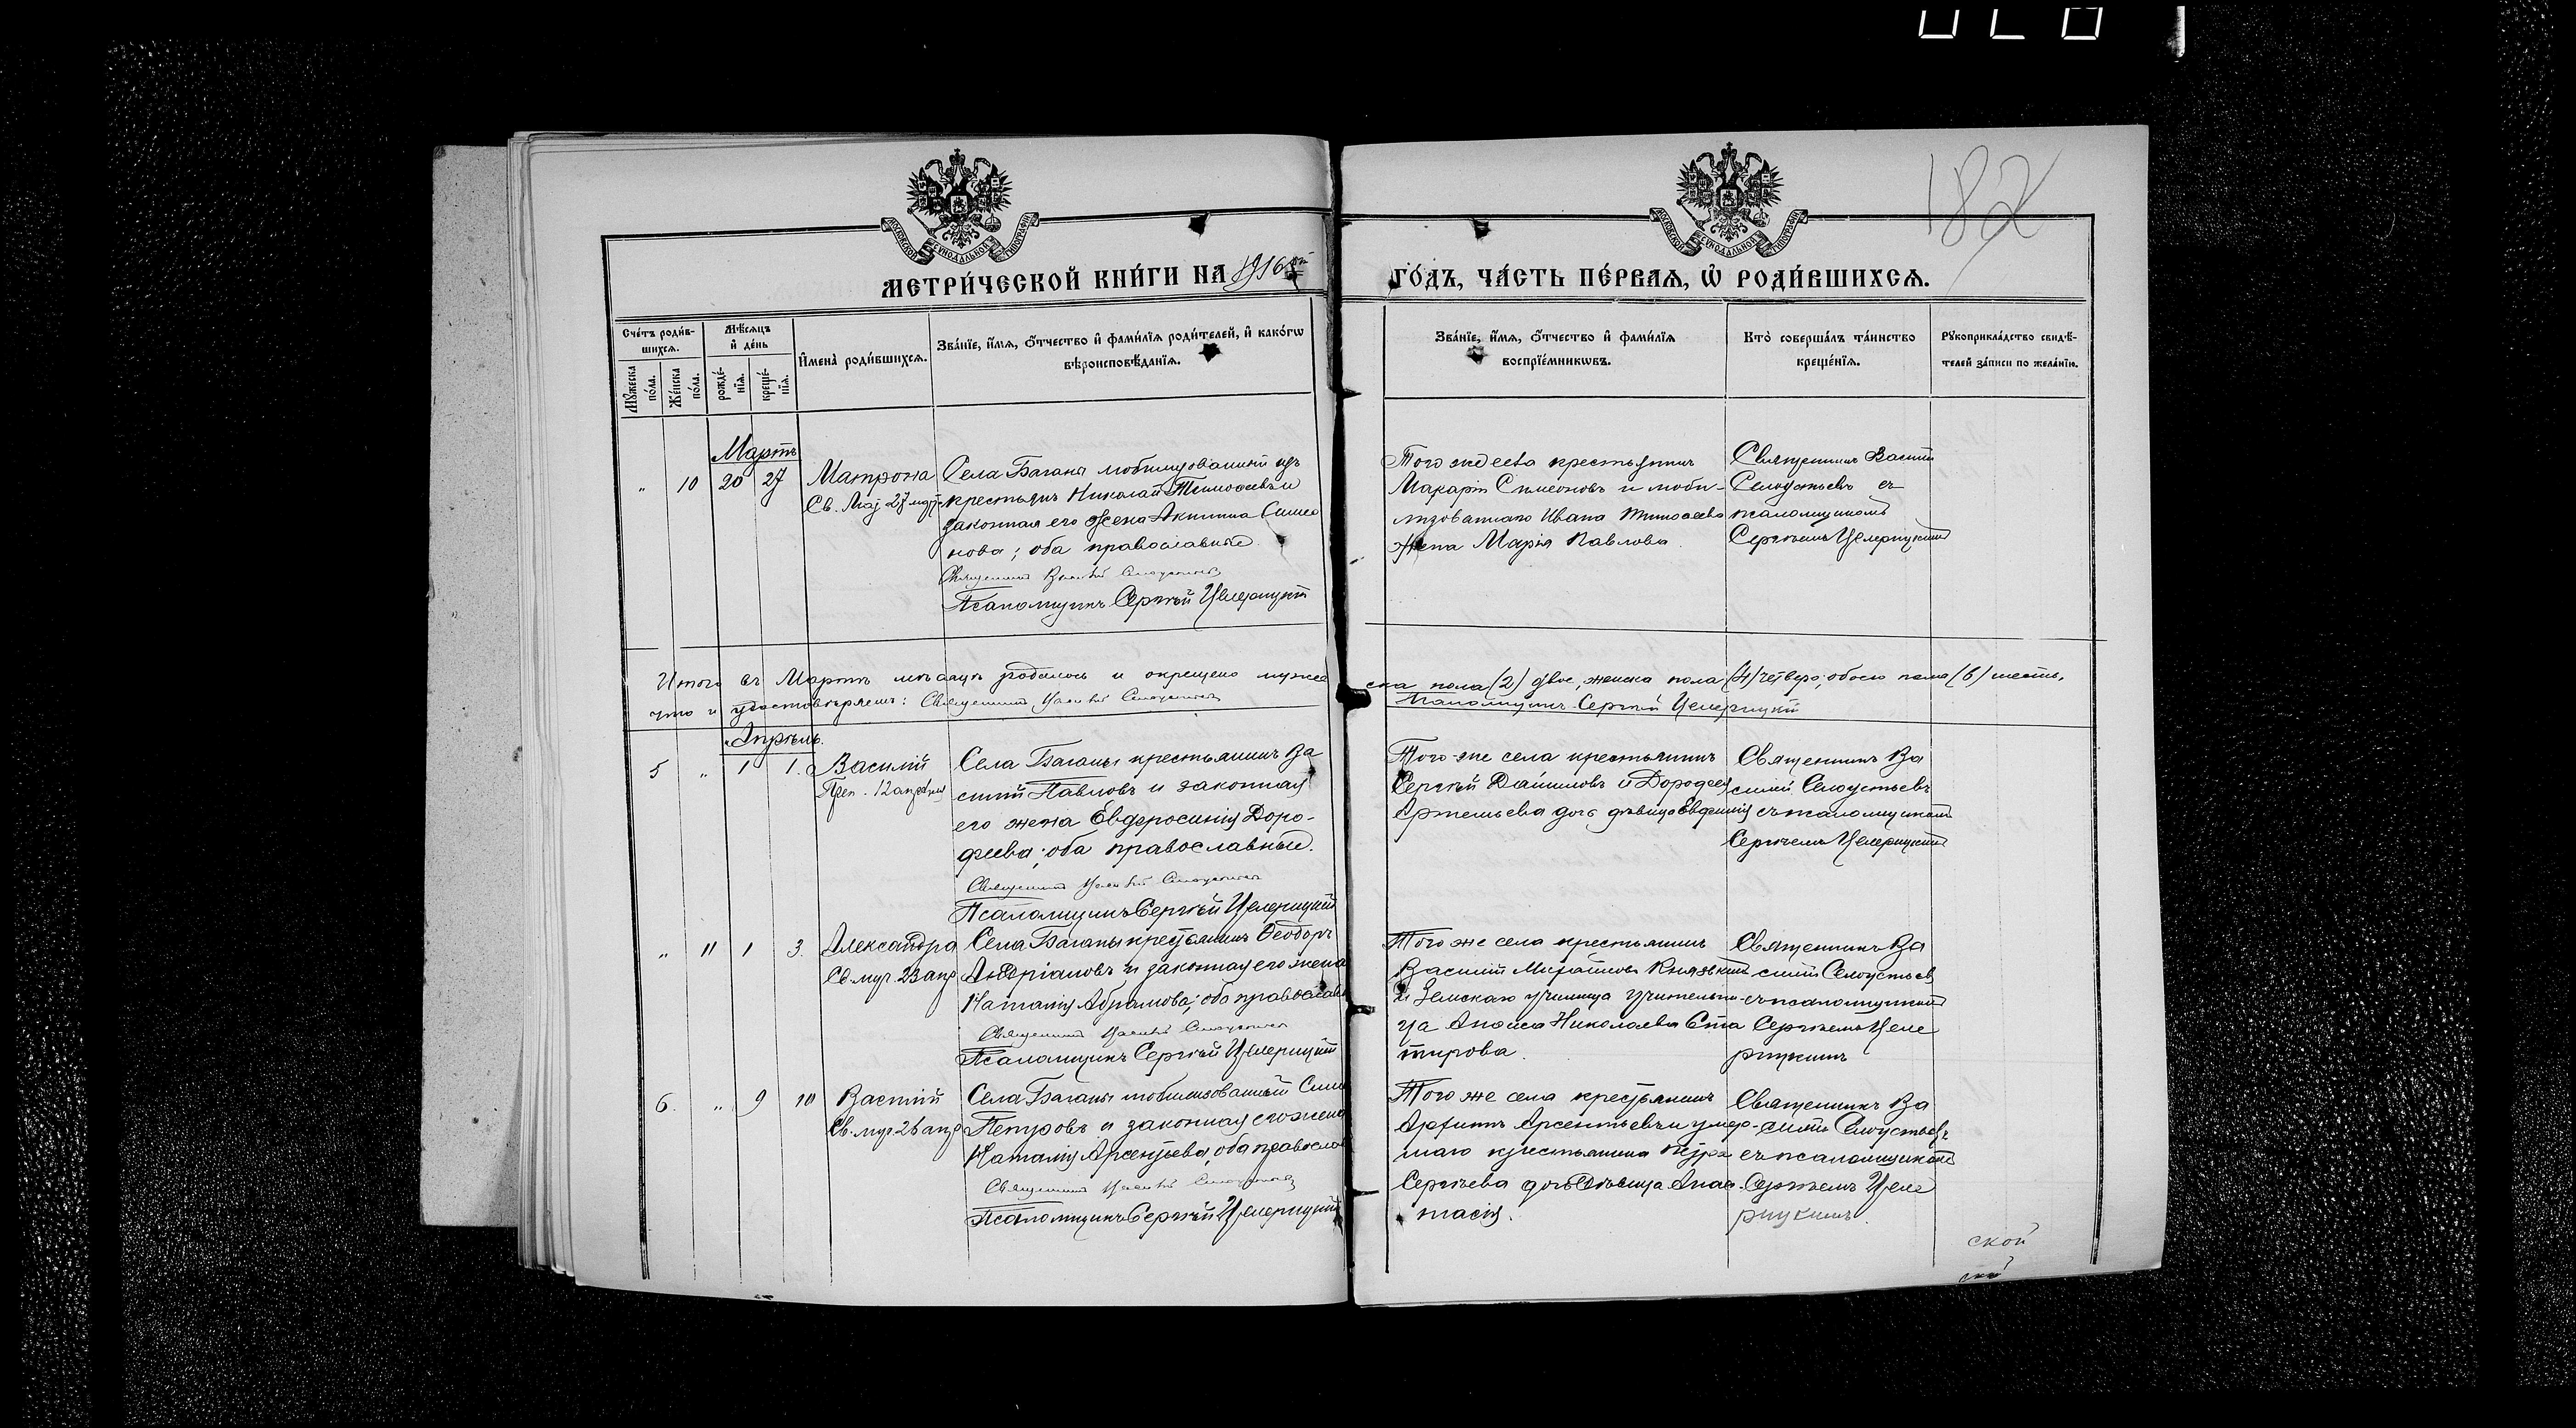 182
МЕТРИ́ЧЕСКОЙ КНИ́ГИ НА 1916 й
ГО́ДЪ, ЧА́СТЬ ПЕ́РВАЯ, Ѡ РОДИ́ВШИХСЯ.
Сче́тъ роди́в-
шихся.
Мѣ́сяцъ
и де́нь
Мꙋ́жеска по́ла.
Же́нска по́ла.
рожде́-
нїя.
креще́-
нїя.
Имена̀ роди́вшихся.
Зва́нїе, и́мя, ѻ́тчество и фами́лїя роди́телей, и како́гѡ
вѣроисповѣ́данїѧ.
Зва́нїе, и́мя, ѻ́тчество и фами́лїя
воспрїе́мникѡвъ.
Кто̀ соверша́лъ та́инство
креще́нїя.
Рꙋкоприкла́дство свидѣ́-
телей за́писи по жела́нїю.
Мартъ
" 10 20 27 Матрона
Св. 27 март
Села Баганы мобилизованный изъ
крестьянъ Николай Тимоѳеевъ и
законная его жена Акилина Симео
нова; оба православные.
Священникъ Василій Селоустьевъ
Псаломщикъ Сергѣй Целерицкій
Того же села крестьянинъ
Макарій Симеоновъ и моби-
лизованнаго Ивана Тимоѳеева
жена Марія Павлова.
Священникъ Василій
Селоустьевъ съ
псаломщикомъ
Сергѣемъ Целерицкимъ
Итого въ Мартѣ мѣсяцѣ родилось и окрещено мужеска пола (2) двое, женска пола (4) четверо, обоего пола (6) шесть,
что и удостовѣряемъ: Священникъ Василій Селоустьевъ
Псаломщикъ Сергѣй Целерицкій
Апрѣль.
5 " 1 1. Василій
Преп. 12 апрѣля
Села Баганы крестьянинъ Ва
силій Павловъ и законная
его жена Евфросинія Доро-
феева; оба православные.
Священникъ Василій Селоустьевъ
Псаломщикъ Сергѣй Целерицкій
Того же села крестьянинъ
Сергѣй Даниловъ и Дорофея
Артемьева дочь дѣвица Евфимія
Священникъ Ва
силій Селоустьевъ
съ псаломщикомъ
Сергѣемъ Целерицкимъ
" 11 1 3. Александра
Св. муч. 23 апр
Села Баганы крестьянинъ Ѳеодоръ
Андріановъ и законная его жена
Наталія Абрамова; оба православ
Священникъ Василій Селоустьевъ
Псаломщикъ Сергѣй Целерицкій
Того же села крестьянинъ
Василій Михайловъ Князькинъ
и Земскаго училища учительни-
ца Николаева Ста
тирова.
Священникъ Ва
силій Селоустьев
съ псаломщикомъ
Сергѣемъ Целе
рицкимъ
6. " 9 10 Василій
Св. муч. 26 апр
Села Баганы мобилизованный
Петровъ и законная его жена
Наталія Арсентьева, оба православ
Священникъ Василій Селоустьевъ
Псаломщикъ Сергѣй Целерицкій
Того же села крестьянинъ
Арсентьевъ и умер-
шаго крестьянина Петра
Сергѣева дочь дѣвица Анас-
тасія.
Священникъ Ва
силій Селоустьевъ
съ псаломщикомъ
Сергѣемъ Целе
рицкимъ.
ской
ской